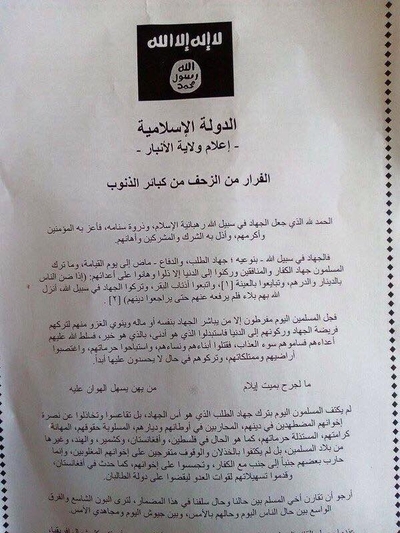 لا إله إلا الله
الله
رسول
محمد
الدولة الإسلامية
- إعلام ولاية الأنبار -
الفرار من الزحف من كبائر الذنوب
الحمد لله الذي جعل الجهاد في سبيل الله رهبانية الإسلام، وذروة سنامه، فأعز به المؤمنين
وأكرمهم، وأذل به الشرك والمشركين وأهانهم.
فالجهاد في سبيل الله - بنوعيه؛ جهاد الطلب، والدفاع - ماض إلى يوم القيامة، وما ترك
المسلمون جهاد الكفار والمنافقين وركنوا إلى الدنيا إلا ذلوا وهانوا على أعدائهم: (إذا ضن الناس
بالدينار والدرهم، وتبايعوا بالعينة [١]، واتبعوا أذناب البقر، وتركوا الجهاد في سبيل الله، أنزل
الله بهم بلاء فلم يرفعه عنهم حتى يراجعوا دينهم) [٢].
فجل المسلمين اليوم مفرطون إلا من يباشر الجهاد بنفسه أو ماله وينوي الغزو منهم لتركهم
فريضة الجهاد وركونهم إلى الدنيا فاستبدلوا الذي هو أدنى، بالذي هو خير، فسلط الله عليهم
أعداءهم فساموهم سوء العذاب، فقتلوا أبناءهم ونساءهم، واستباحوا حرماتهم، واغتصبوا
أراضيهم وممتلكاتهم، وتركوهم في حال لا يحسدون عليها أبداً.
من يهن يسهل الهوان عليه ما لجرح بميت إيلام
لم يكتف المسلمون اليوم بترك جهاد الطلب الذي هو أس الجهاد، بل تقاعسوا وتخاذلوا عن نصرة
إخوانهم المضطهدين في دينهم، المحاربين في أوطانهم وديارهم، المسلوبة حقوقهم، المهانة
كرامتهم، المستذلة حرماتهم، كما هو الحال في فلسطين، وأفغانستان، وكشمير، والهند، وغيرها
من بلاد المسلمين، بل لم يكتفوا بالخذلان والوقوف متفرجين على إخوانهم المغلوبين، وإنما
حارب بعضهم جنباً إلى جنب مع الكفار، وتجسسوا على إخوانهم، كما حدث في أفغانستان،
وقدموا تسهيلاتهم لقوات العدو ليقضوا على دولة الطالبان.
أرجو أن تقارن أخي المسلم بين حالنا وحال سلفنا في هذا المضمار، لترى البون الشاسع والفرق
الواسع بين حال الناس اليوم وحالهم بالأمس، وبين جيوش اليوم ومجاهدي الأمس.